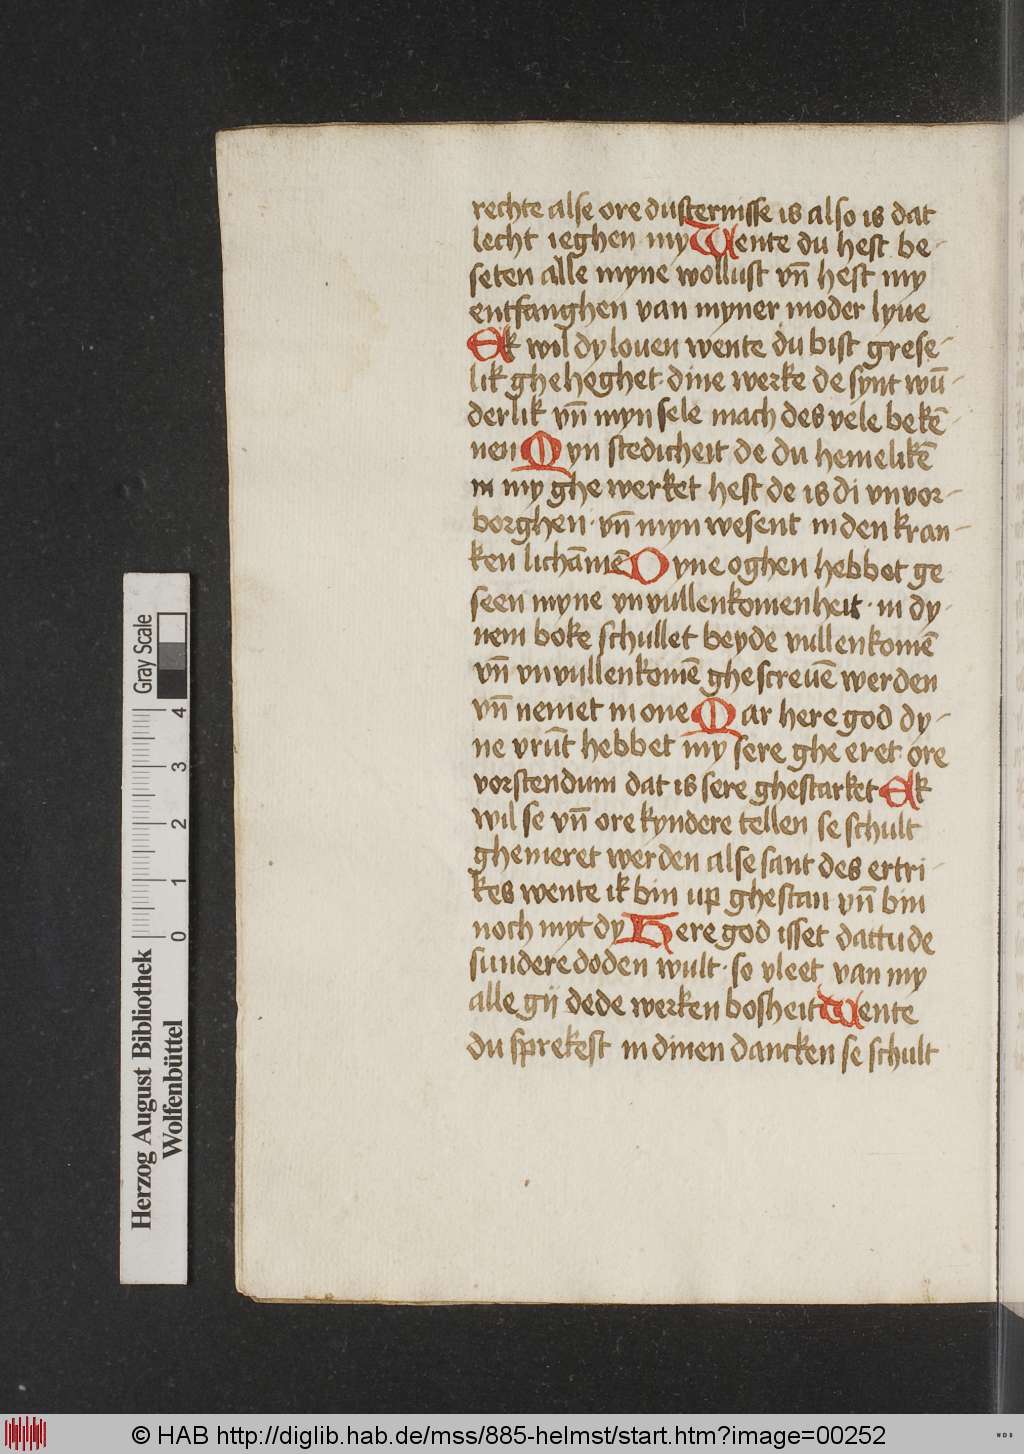 rechte alse ore dusternisse is also is dat
lecht ieghen my Wente du hest be-
seten alle myne wollust vn̄ hest my
entfanghen van myner moder lyue
Ek wil dy louen wente du bist grese-
lik gheheghet· dine werke de synt wū-
derlik vn̄ myn sele mach des vele bekē-
nen Myn stedicheit de du hemelikē
in my ghewerket hest de is di vnvor-
borghen· vn̄ myn wesent in den kran-
ken lichāmē Dyne oghen hebbet ge
seen myne vnvullenkomenheit· in dy-
nem boke schullet beyde vullenkomē
vn̄ vnvullenkomē ghescreuē werden
vn̄ nemet in one Mar here god dy-
ne vrūt hebbet my sere ghe eret· ore
vorstendum dat is sere ghestarket Ek
wil se vn̄ ore kyndere tellen se schult
ghemeret werden alse sant des ertri-
kes wente ik bin up ghestan vn̄ bin
noch myt dy Here god isset dattu de
sundere doden wult· so vleet van my
alle gij dede werken bosheit Wente
du sprekest in dinen dancken se schult
Gray Scale
4
3
2
1
0
Herzog August Bibliothek
Wolfenbüttel
© HAB http://diglib.hab.de/mss/885-helmst/start.htm?image=00252